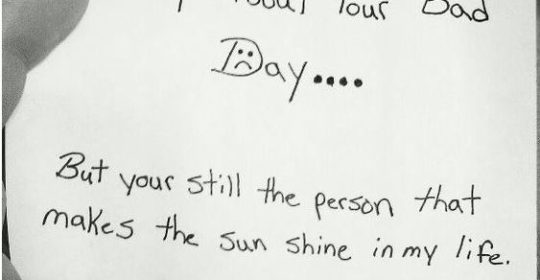 Your Bad
Day....
But your still the person that
makes the sun shine in my life.